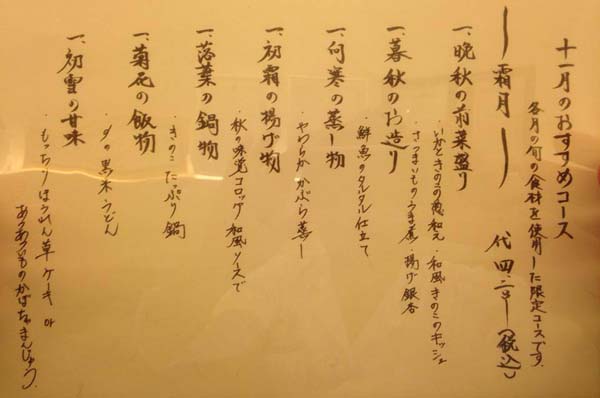 十一月のおすすめコース
各月の旬の食材を使用した限定コースです。
〜霜月〜
代 四.二
(税込)
一、晩秋の前菜盛り
・いかときのこの葱和え ・和風きのこのキッシュ
・さつまいものうま煮 ・揚げ銀杏
一、暮秋のお造り
・鮮魚のタルタル仕立て
一、向寒の蒸し物
・やわらかかぶら蒸し
一、初霜の揚げ物
・秋の味覚コロッケ 和風ソースで
一、落葉の鍋物
・きのこたっぷり鍋
一、菊花の飯物
・夕の黒米うどん
一、初雪の甘味
・もっちりほうれん草ケーキ or
あつあついものかぼちゃまんじゅう